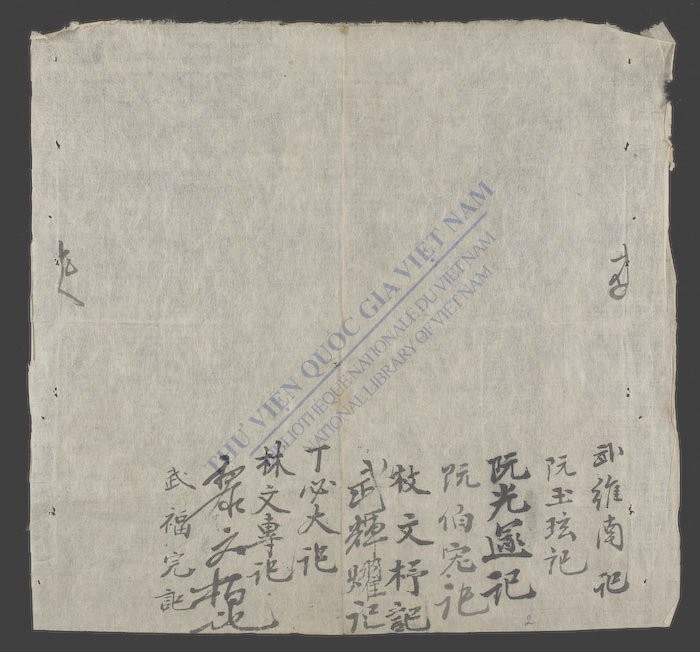 武維南記
阮玉玹記
阮光遜記
阮伯完記
枚文杼記
武輝耀記
丁必大記
林文專記
文記
武福完記
THƯ VIỆN QUỐC GIA VIỆT NAM
BIBLIOTHÈQUE NATIONALE DU VIETNAM
NATIONAL LIBRARY OF VIETNAM
2